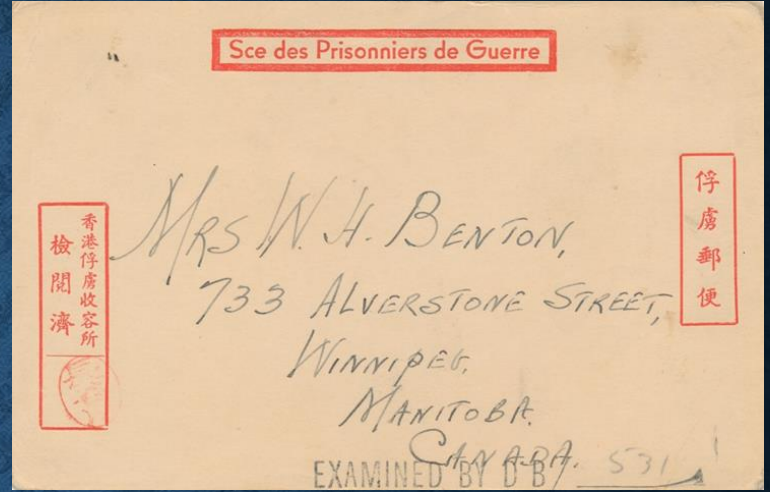 Sce des Prisonniers de Guerre
俘虜郵便
香港俘虜收容所
檢閲濟
MRS W. H. BENTON,
733 ALVERSTONE STREET,
WINNIPEG,
MANITOBA.
CANADA.
531
EXAMINED BY D B